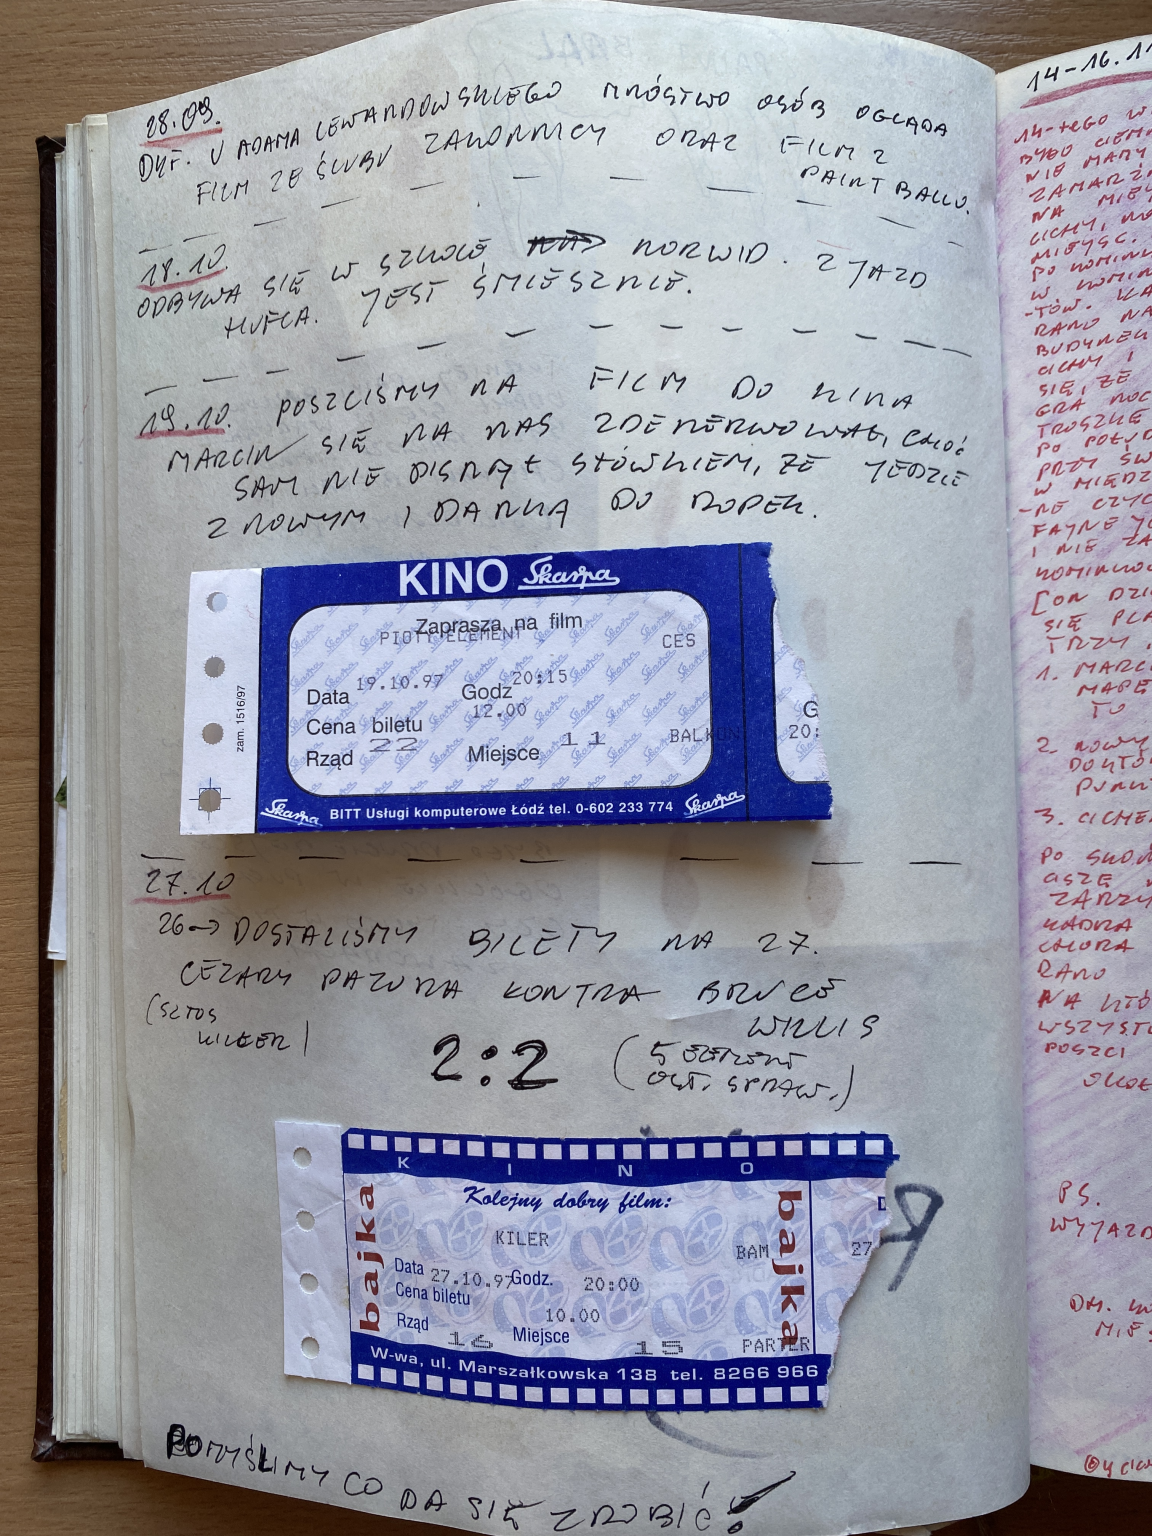 28.09.
DYT. U ADAMA LEWANDOWSKIEGO MNÓSTWO OSÓB OGLĄDA
FILM ZE ŚLUBU ZAWORNICY ORAZ FILM Z
PAINT BALLU.
18.10.
ODBYWA SIĘ W SZKOLE NORWID. ZJAZD
HUFCA. JEST ŚMIESZNIE.
19.10. POSZLIŚMY NA FILM DO KINA
MARCIN SIĘ NA NAS ZDENERWOWAŁ, CHOĆ
SAM NIE PISNĄŁ SŁÓWKIEM, ŻE JEDZIE
Z NOWYM I DANKĄ DO ROPEK.
KINO Skarpa
Zaprasza na film
PIOTY ELEMENT
CES
Data 19.10.97 Godz 20:15
Cena biletu 12.00
Rząd 22 Miejsce 11 BALKON
G
20:
zam. 1516/97
Skarpa BITT Usługi komputerowe Łódź tel. 0-602 233 774 Skarpa
27.10
26→ DOSTALIŚMY BILETY NA 27.
CEZARY PAZURA KONTRA BRUCE
WILLIS
(SZTOS
KILLER)
2:2
(5 ELEMENT
OST. SPRAW.)
KINO
bajka
Kolejny dobry film:
KILER
BAM
Data 27.10.97 Godz. 20:00
Cena biletu 10.00
Rząd 16 Miejsce 15 PARTER
bajka
D
27
W-wa, ul. Marszałkowska 138 tel. 8266 966
POMYŚLIMY CO DA SIĘ ZROBIĆ!
14-16.11
14-TEGO W
BYŁO CIEM
NIE MAMY
NA MIE
CICHY, MA
MIEJSC.
W
-TÓW.
RANO NA
BUDYNEK
CICHY I
SIĘ, ŻE
GRA NOC
TROSZKĘ
PO POŁUD
PRZY ŚW
W MIĘDZ
-NE CZYC
I NIE ZA
[ON DZI
SIĘ PLA
TRZY
1. MARC
MAPE
TO
2. NOWY
PUNK
3. CICHE
KADRA
RANO
NA KTÓ
WSZYST
POSZLI
PS.
WYJAZD